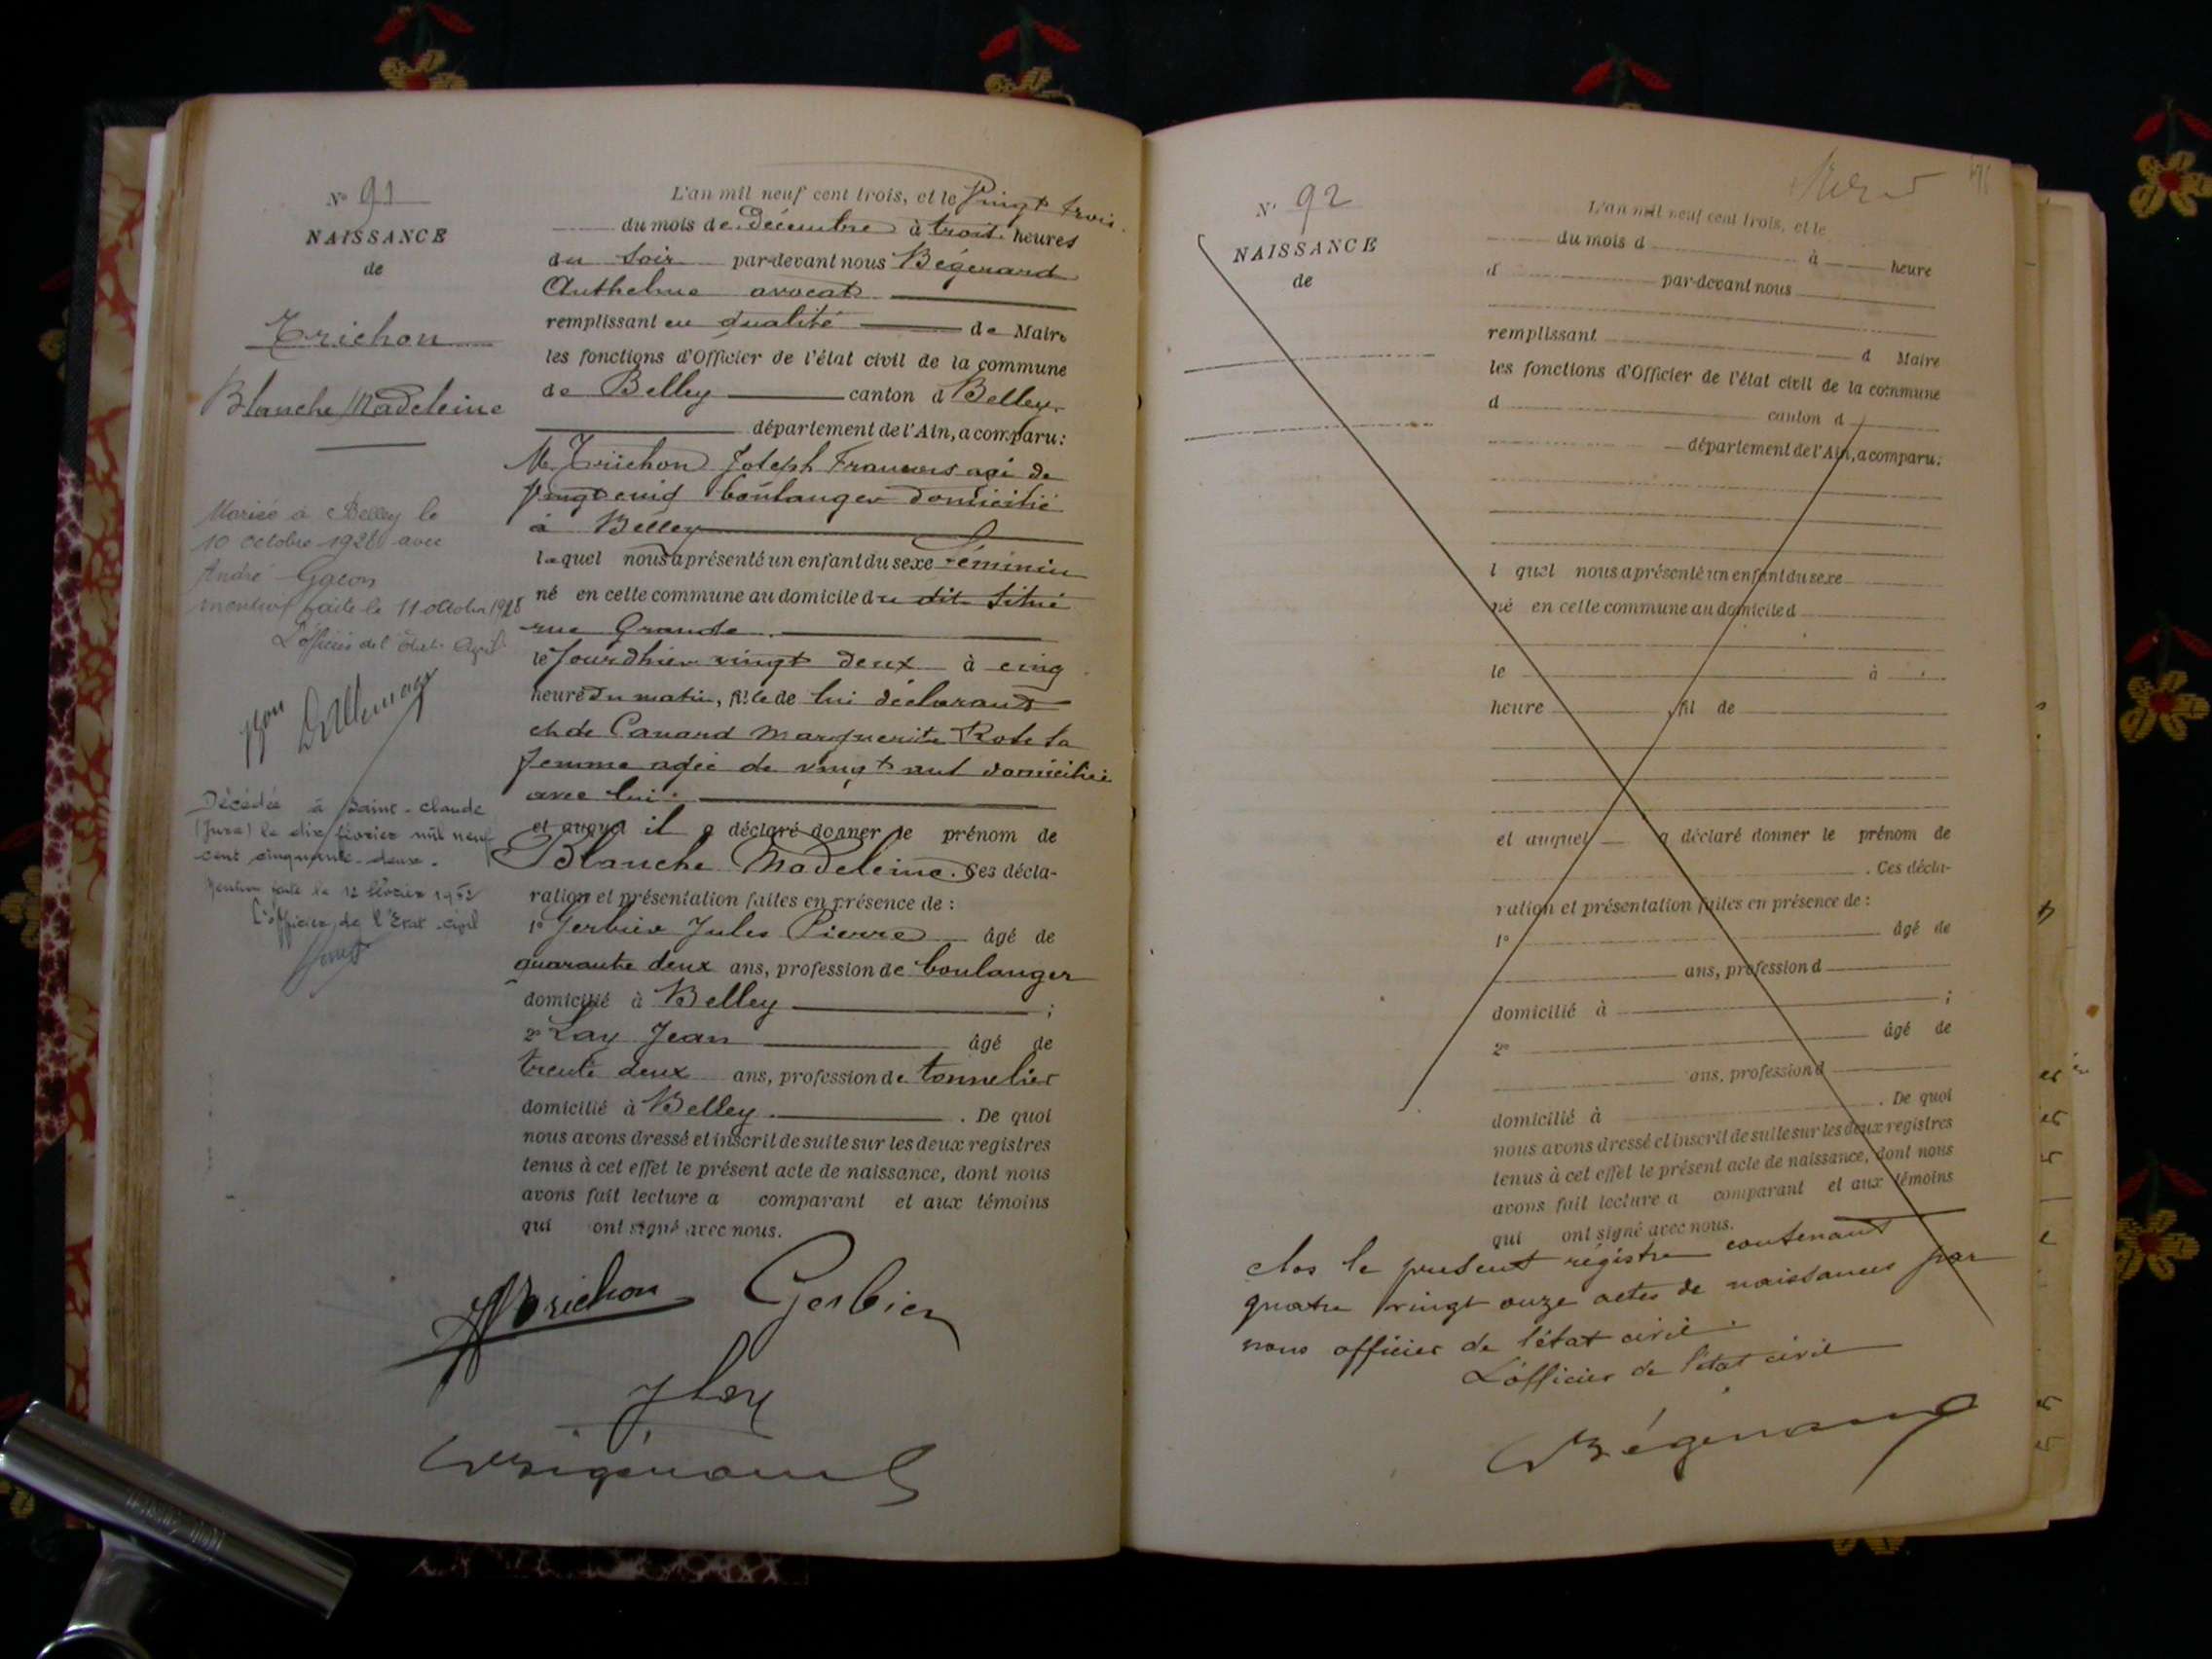 N° 91
NAISSANCE
de
Trichon
Blanche Madeleine
Mariée à Belley le
10 octobre 1928 avec
André Gacon
mention faite le 11 octobre 1928
L'officier de l'Etat Civil
Décédée à Saint-Claude
(Jura) le dix février mil neuf
cent cinquante-deux.
Mention faite le 12 février 1952
L'officier de l'Etat-civil
L'an mil neuf cent trois, et le Vingt trois
du mois de Décembre à trois heures
du soir par-devant nous Bégerard
Anthelme avocat
remplissant en qualité de Maire
les fonctions d'Officier de l'état civil de la commune
de Belley canton d Belley
département de l'Ain, a comparu:
M. Trichon Joseph François agé de
vingt cinq boulanger domicilié
à Belley
lequel nous a présenté un enfant du sexe féminin
né en cette commune au domicile du dit situé
rue Grande.
le jour d'hier vingt deux à cinq
heure du matin, fille de lui déclarant
et de Canard Marguerite Rose sa
femme agée de vingt domiciliée
avec lui.
et auquel il a déclaré donner le prénom de
Blanche Madeleine. Ces décla-
ration et présentation faites en présence de :
1° Gerbier Jules Pierre âgé de
quarante deux ans, profession de boulanger
domicilié à Belley ;
2° Lay Jean âgé de
trente deux ans, profession de tonnelier
domicilié à Belley . De quoi
nous avons dressé et inscrit de suite sur les deux registres
tenus à cet effet le présent acte de naissance, dont nous
avons fait lecture a comparant et aux témoins
qui ont signé avec nous.
Trichon Gerbier
J Lay
Bégerard
N° 92
NAISSANCE
de
L'an mil neuf cent trois, et le
du mois d à heure
d par-devant nous
remplissant d Maire
les fonctions d'Officier de l'état civil de la commune
d canton d
département de l'Ain, a comparu:
l quel nous a présenté un enfant du sexe
né en cette commune au domicile d
le à
heure , fil de
et auquel a déclaré donner le prénom de
. Ces décla-
ration et présentation faites en présence de :
1° âgé de
ans, profession d
domicilié à ;
2° âgé de
ans, profession d
domicilié à . De quoi
nous avons dressé et inscrit de suite sur les deux registres
tenus à cet effet le présent acte de naissance, dont nous
avons fait lecture a comparant et aux témoins
qui ont signé avec nous.
clos le présent régistre contenant
quatre vingt onze actes de naissances par
nous officier de l'état civil.
L'officier de l'état civil
Bégerard